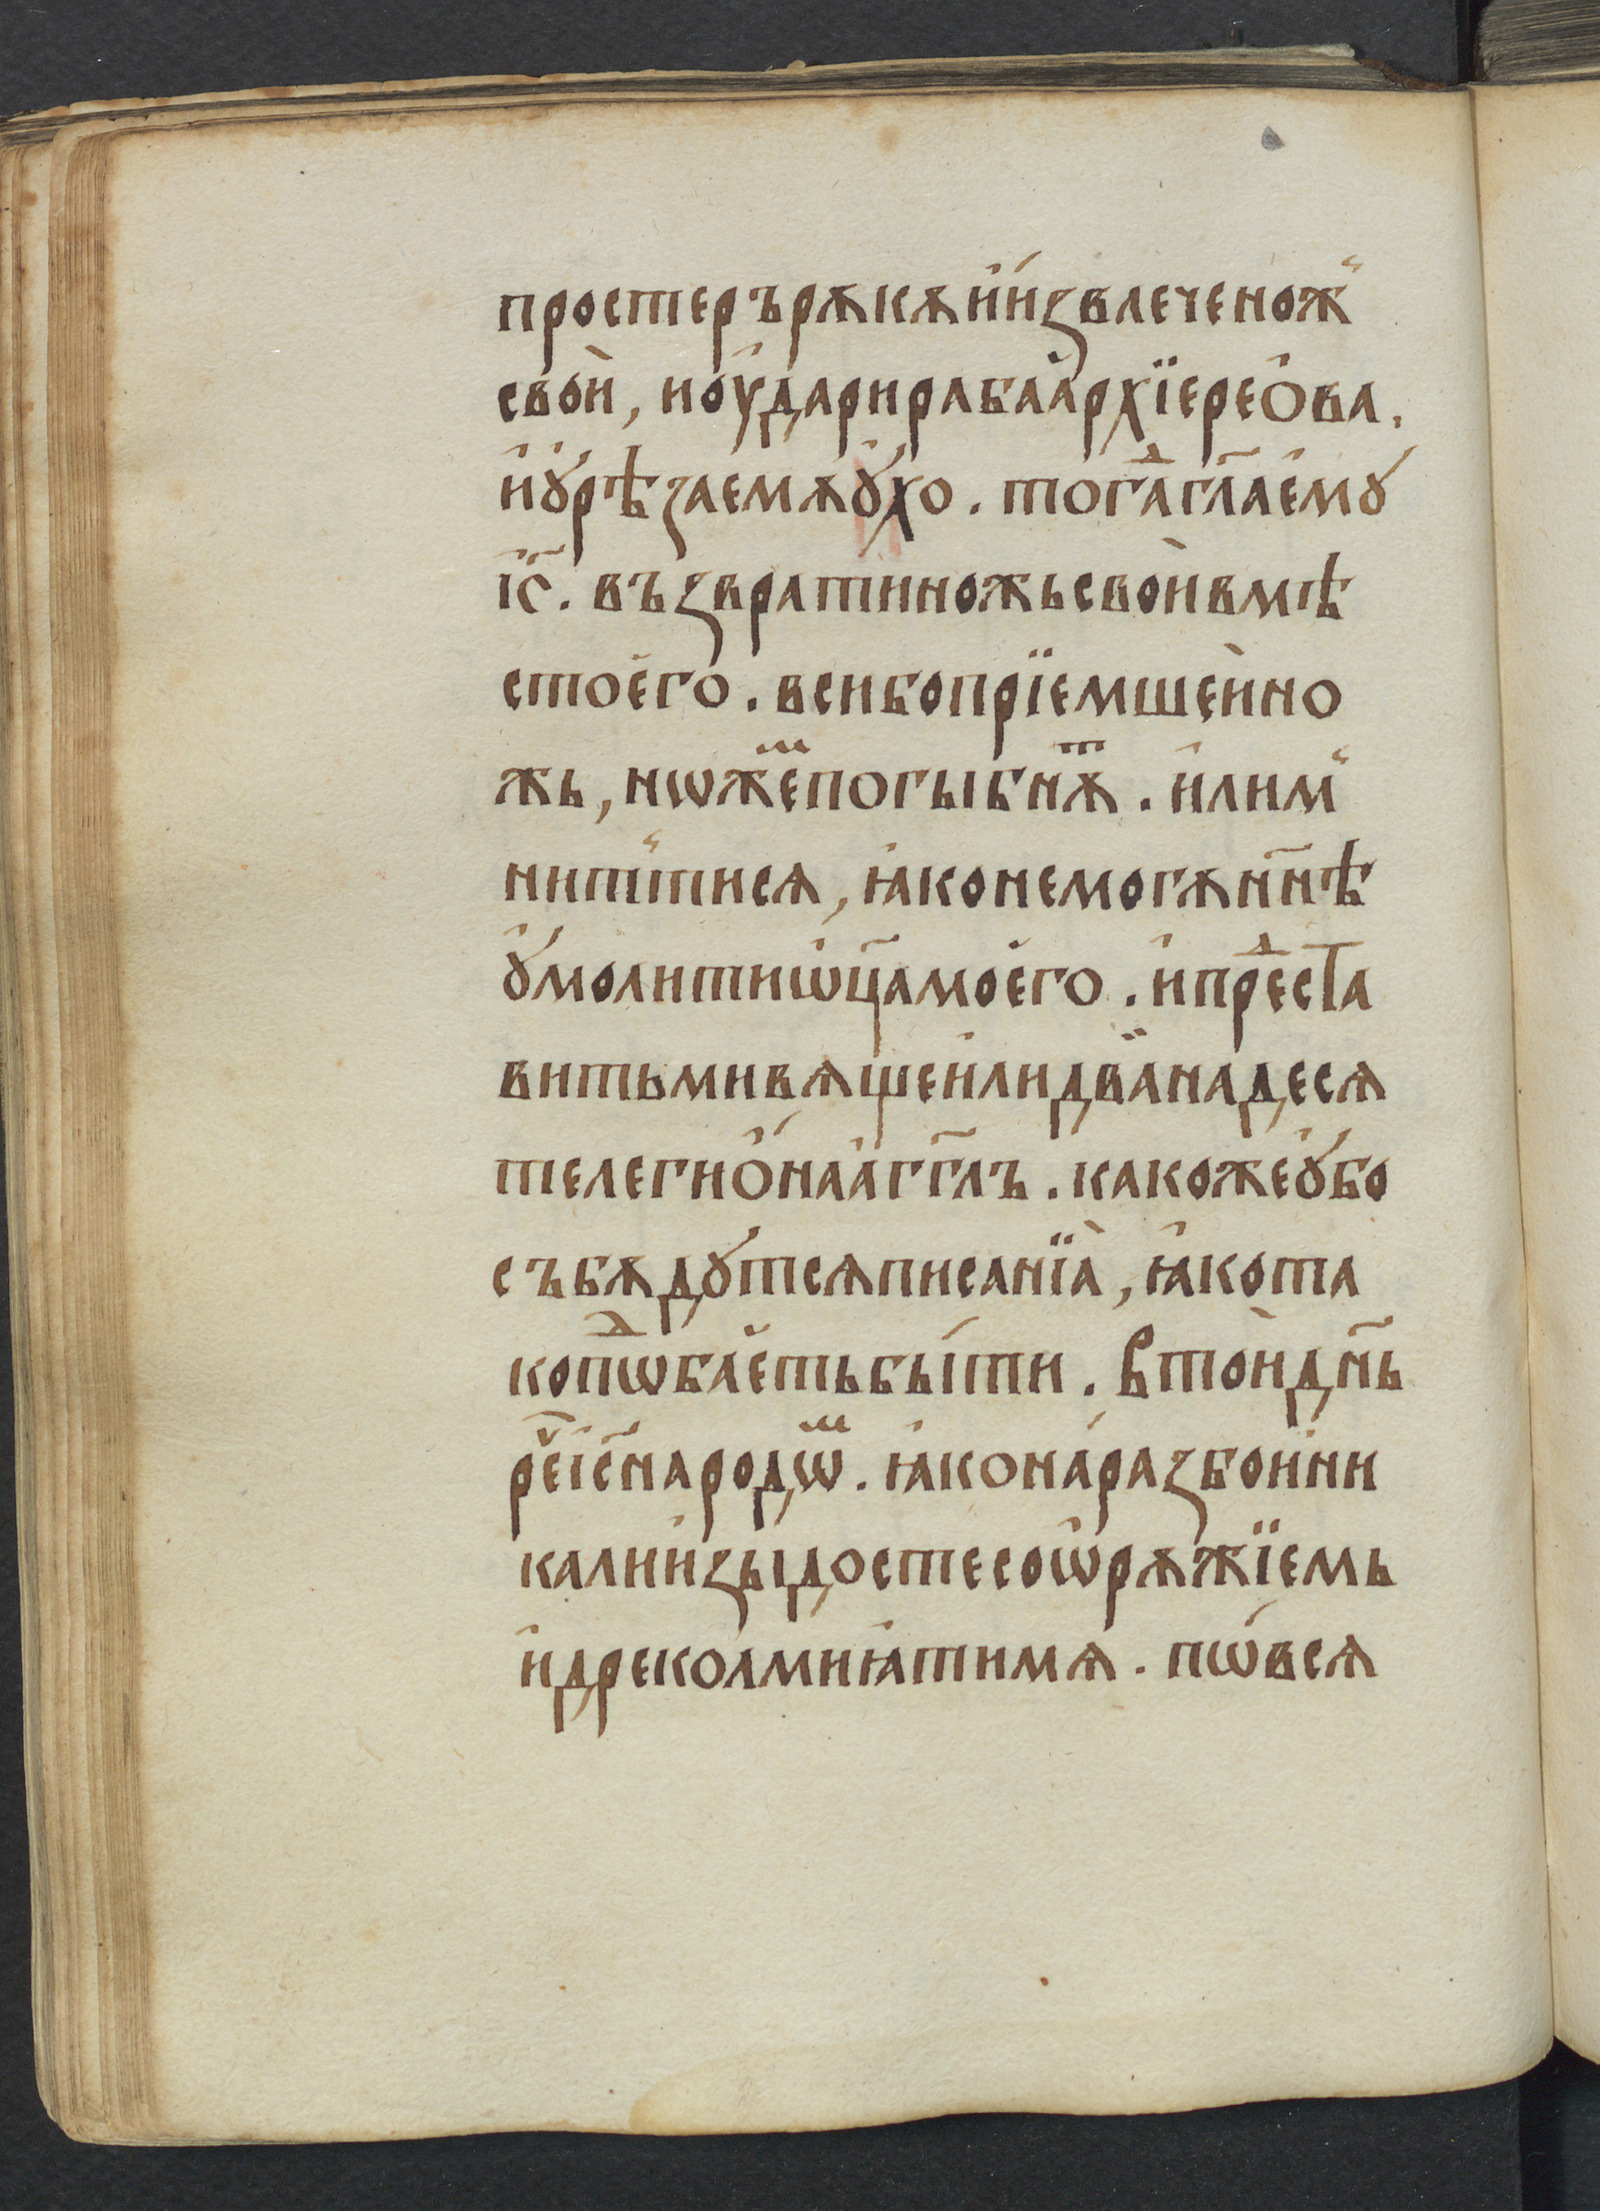 простеръ рѫкѫ и҆ и҆звлече нож̾
свои̏, и оу҆дари раба а҆рхїерео҆ва.
и҆ ꙋ҆рѣза емѫ ꙋ҆хо. тогⷣа гл҃а е҆мꙋ
і҆с҃. възврати ножь свои̏ в мѣ
сто е҆го. вси бо прїемшеи̏ но
жь, ноѡжеⷨ погыбнѫⷮ. и҆ли м̾
нит̾ ти сѧ, ꙗ҆ко не могѫ нн҃ѣ
ꙋ҆молити ѡ҆ц҃а мое҆го. и҆ преⷣста
вить ми вѧще и҆ли двана́десѧ
те легио҆на а҆гг҃лъ. како же ꙋ҆бо
събѫдꙋтсѧ писанїа̀, ꙗ҆ко та
ко поⷣѡбае҆ть бы́ти. в тои̏ дн҃ь
реⷱ҇ і҆с҃ народѡⷨ. ꙗ҆ко на́ разбои҆ни
ка ли и҆зыдосте со ѡ҆рѫжїемь
и҆ дреколми ꙗ҆ти мѧ. пѡ҆ всѧ